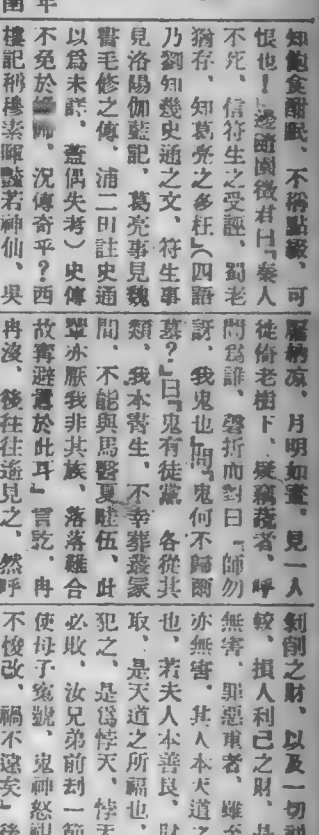 南年
知飽食酣眠、不稱點綴、可
恨也！邊隨園徵君曰『秦人
不死、信符生之受誣、蜀老
猶存、知葛亮之多枉』（四語
乃劉知幾史通之文、符生事
見洛陽伽藍記、葛亮事見魏
書毛修之傳、浦二田註史通
以爲未詳、蓋偶失考）史傳
不免於緣飾、況傳奇乎？西
樓記稱穆素暉豔若神仙、吳
納凉、月明如晝、見一人
徙倚老樹下、疑竊蔬者、呼
問爲誰、磬折而對曰『師勿
訝、我鬼也』問『鬼何不歸爾
墓？』曰『鬼有徒黨、各從其
類、我本書生、不幸葬叢冢
間、不能與馬醫夏畦伍、此
輩亦厭我非其族、落落難合
故寧避囂於此耳』言訖、冉
冉沒、後往往遙見之、然呼
剝削之財、以及一切
較、損人利己之財、
無害、罪惡重者、雖
亦無害、其人本天道之
也、若夫人本善良、財
取、是天道之所福也、
犯之、是爲悖天、悖天
必敗、汝兄弟前刦一節
使母子寃號、鬼神怒視
不悛改、禍不遠矣』後